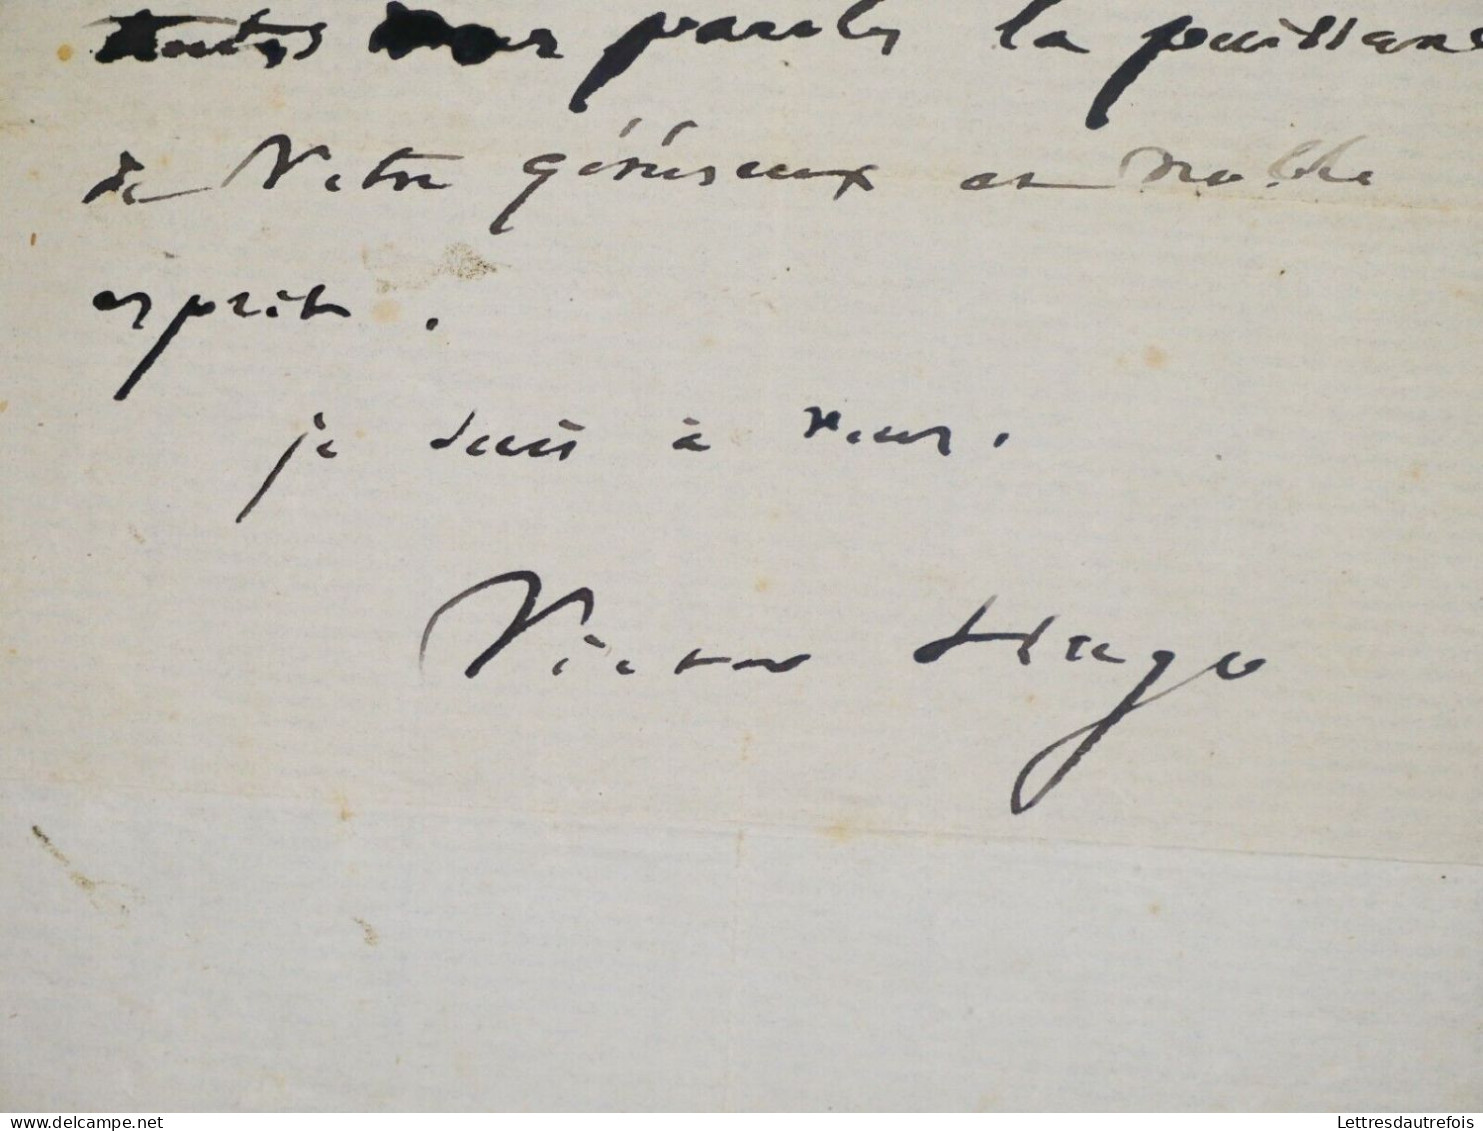 toutes vos paroles la puissance
de Votre généreux et noble
esprit.
je suis à vous.
Victor Hugo
www.delcampe.net
Lettresdautrefois